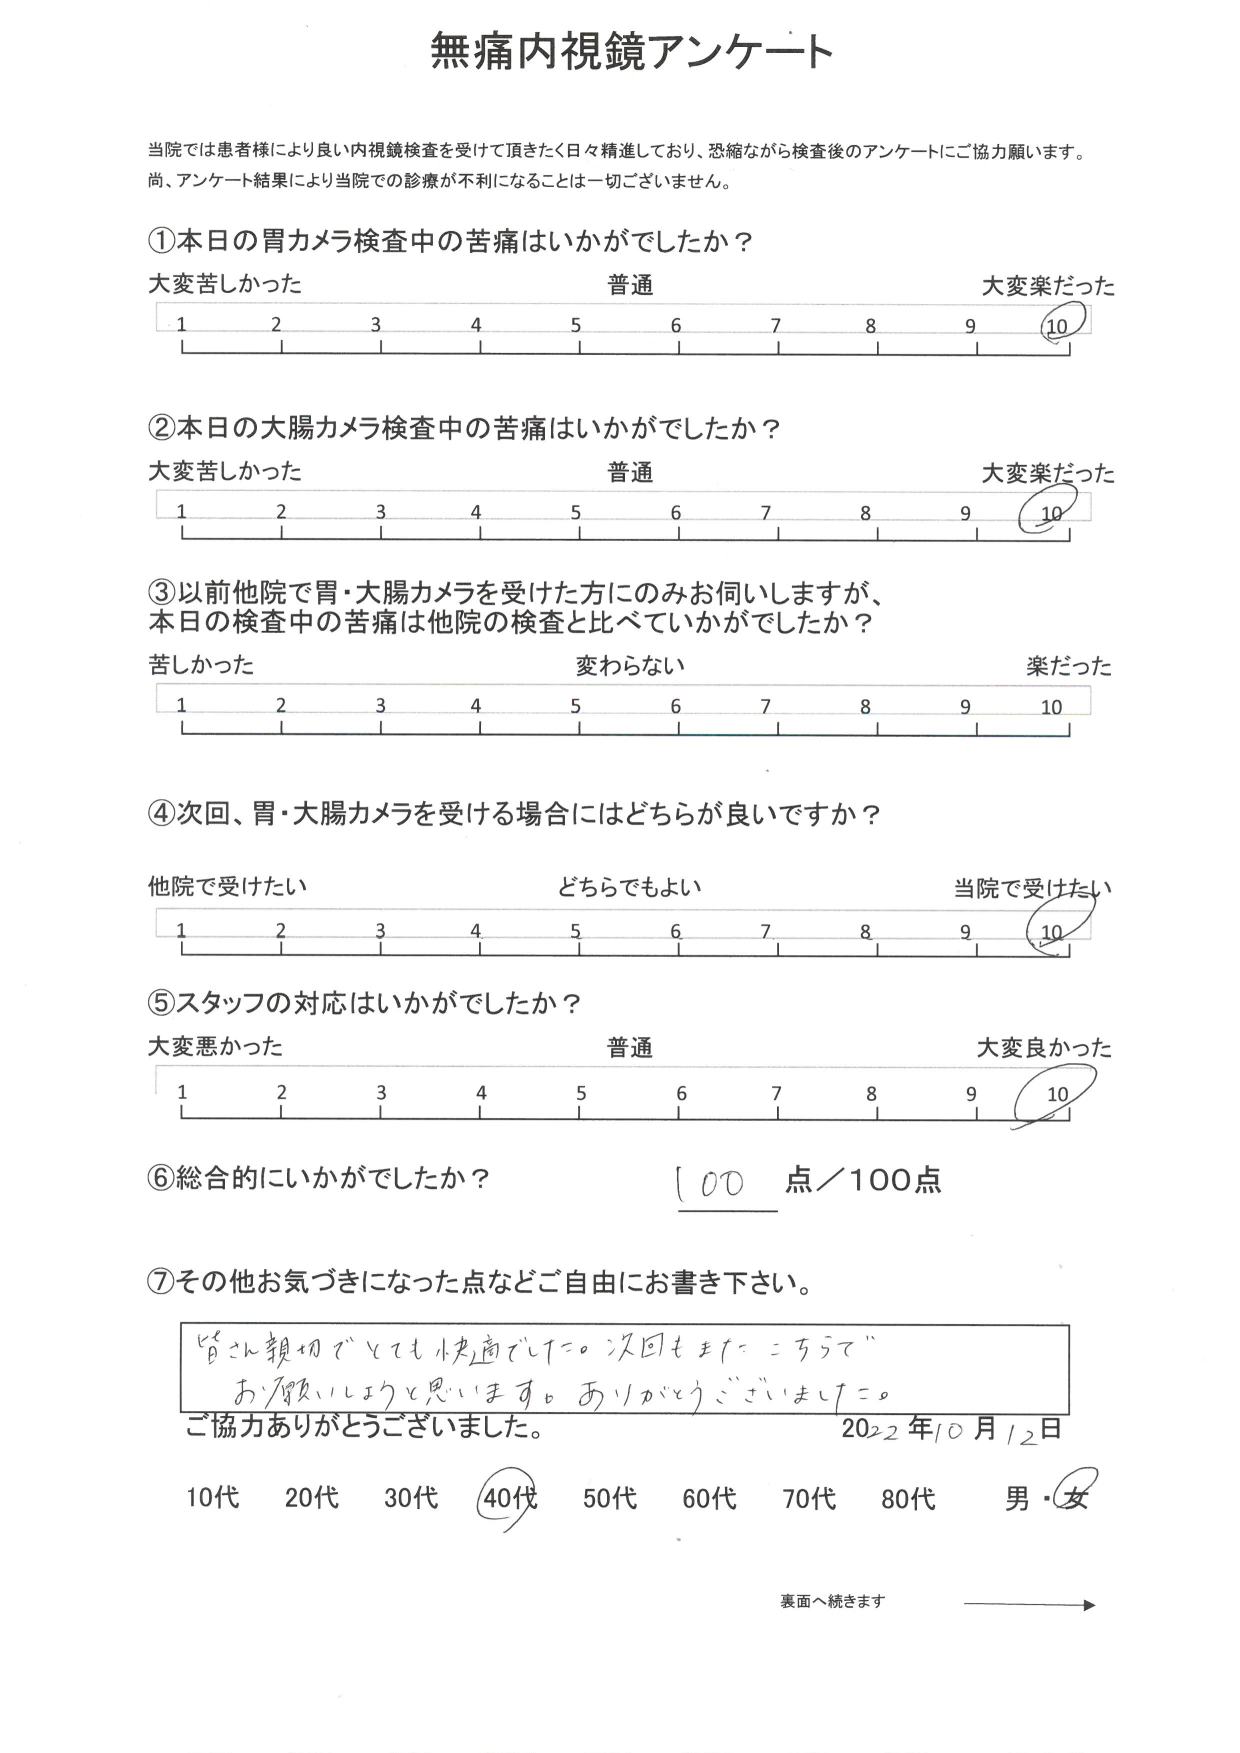 無痛内視鏡アンケート
当院では患者様により良い内視鏡検査を受けて頂きたく日々精進しており、恐縮ながら検査後のアンケートにご協力願います。
尚、アンケート結果により当院での診療が不利になることは一切ございません。
①本日の胃カメラ検査中の苦痛はいかがでしたか？
大変苦しかった 普通 大変楽だった
1 2 3 4 5 6 7 8 9 10
②本日の大腸カメラ検査中の苦痛はいかがでしたか？
大変苦しかった 普通 大変楽だった
1 2 3 4 5 6 7 8 9 10
③以前他院で胃・大腸カメラを受けた方にのみお伺いしますが、
本日の検査中の苦痛は他院の検査と比べていかがでしたか？
苦しかった 変わらない 楽だった
1 2 3 4 5 6 7 8 9 10
④次回、胃・大腸カメラを受ける場合にはどちらが良いですか？
他院で受けたい どちらでもよい 当院で受けたい
1 2 3 4 5 6 7 8 9 10
⑤スタッフの対応はいかがでしたか？
大変悪かった 普通 大変良かった
1 2 3 4 5 6 7 8 9 10
⑥総合的にいかがでしたか？ 100 点／100点
⑦その他お気づきになった点などご自由にお書き下さい。
皆さん親切でとても快適でした。次回もまたこちらで
お願いしようと思います。ありがとうございました。
ご協力ありがとうございました。 2022年10月12日
10代 20代 30代 40代 50代 60代 70代 80代 男・女
裏面へ続きます